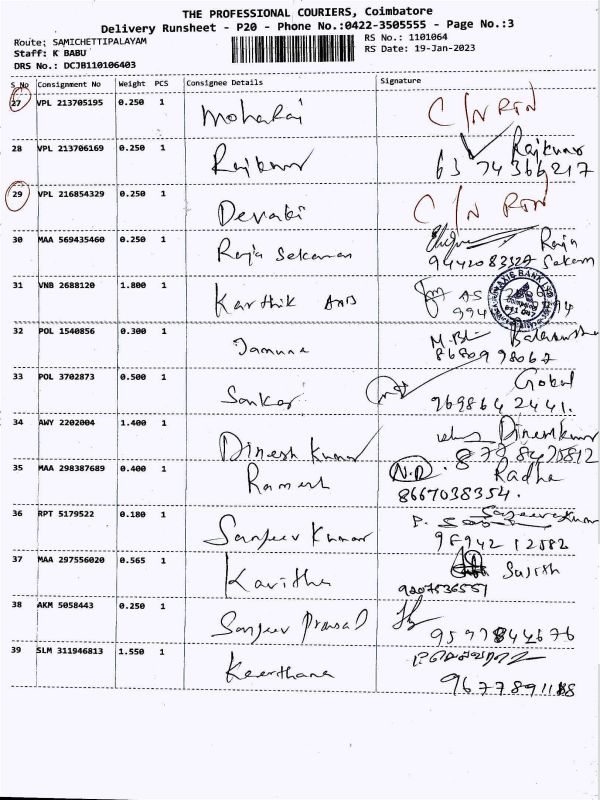 THE PROFESSIONAL COURIERS, Coimbatore
Delivery Runsheet - P20 - Phone No.:0422-3505555 - Page No.:3
Route: SAMICHETTIPALAYAM
Staff: K BABU
DRS No.: DCJB110106403
RS No.: 1101064
RS Date: 19-Jan-2023
S No Consignment No Weight PCS Consignee Details Signature
27 VPL 213705195 0.250 1 Moharaj C/N RTN
28 VPL 213706169 0.250 1 Rajkumar Rajkumar
6374366217
29 VPL 216854329 0.250 1 Devaki C/N RTN
30 MAA 569435460 0.250 1 Raja Sekaran Raja
9442083327 Sekaran
31 VNB 2688120 1.800 1 Karthik AXIS BANK LTD
32 POL 1540856 0.300 1 Jamuna
8680998062
33 POL 3702873 0.500 1 Sankar Gokul
9698642441.
34 AWY 2202004 1.400 1 Dinesh Kumar Dineshkumar
8778425812
35 MAA 298387689 0.400 1 Ramesh N.R Radha
8667038354.
36 RPT 5179522 0.180 1 Sanjeev Kumar Sanjeevkumar
9894212582
37 MAA 297556020 0.565 1 Kavitha Sujith
9207536551
38 AKM 5058443 0.250 1 Sanjeev Prasad
9597844676
39 SLM 311946813 1.550 1 Keerthana
9677891188